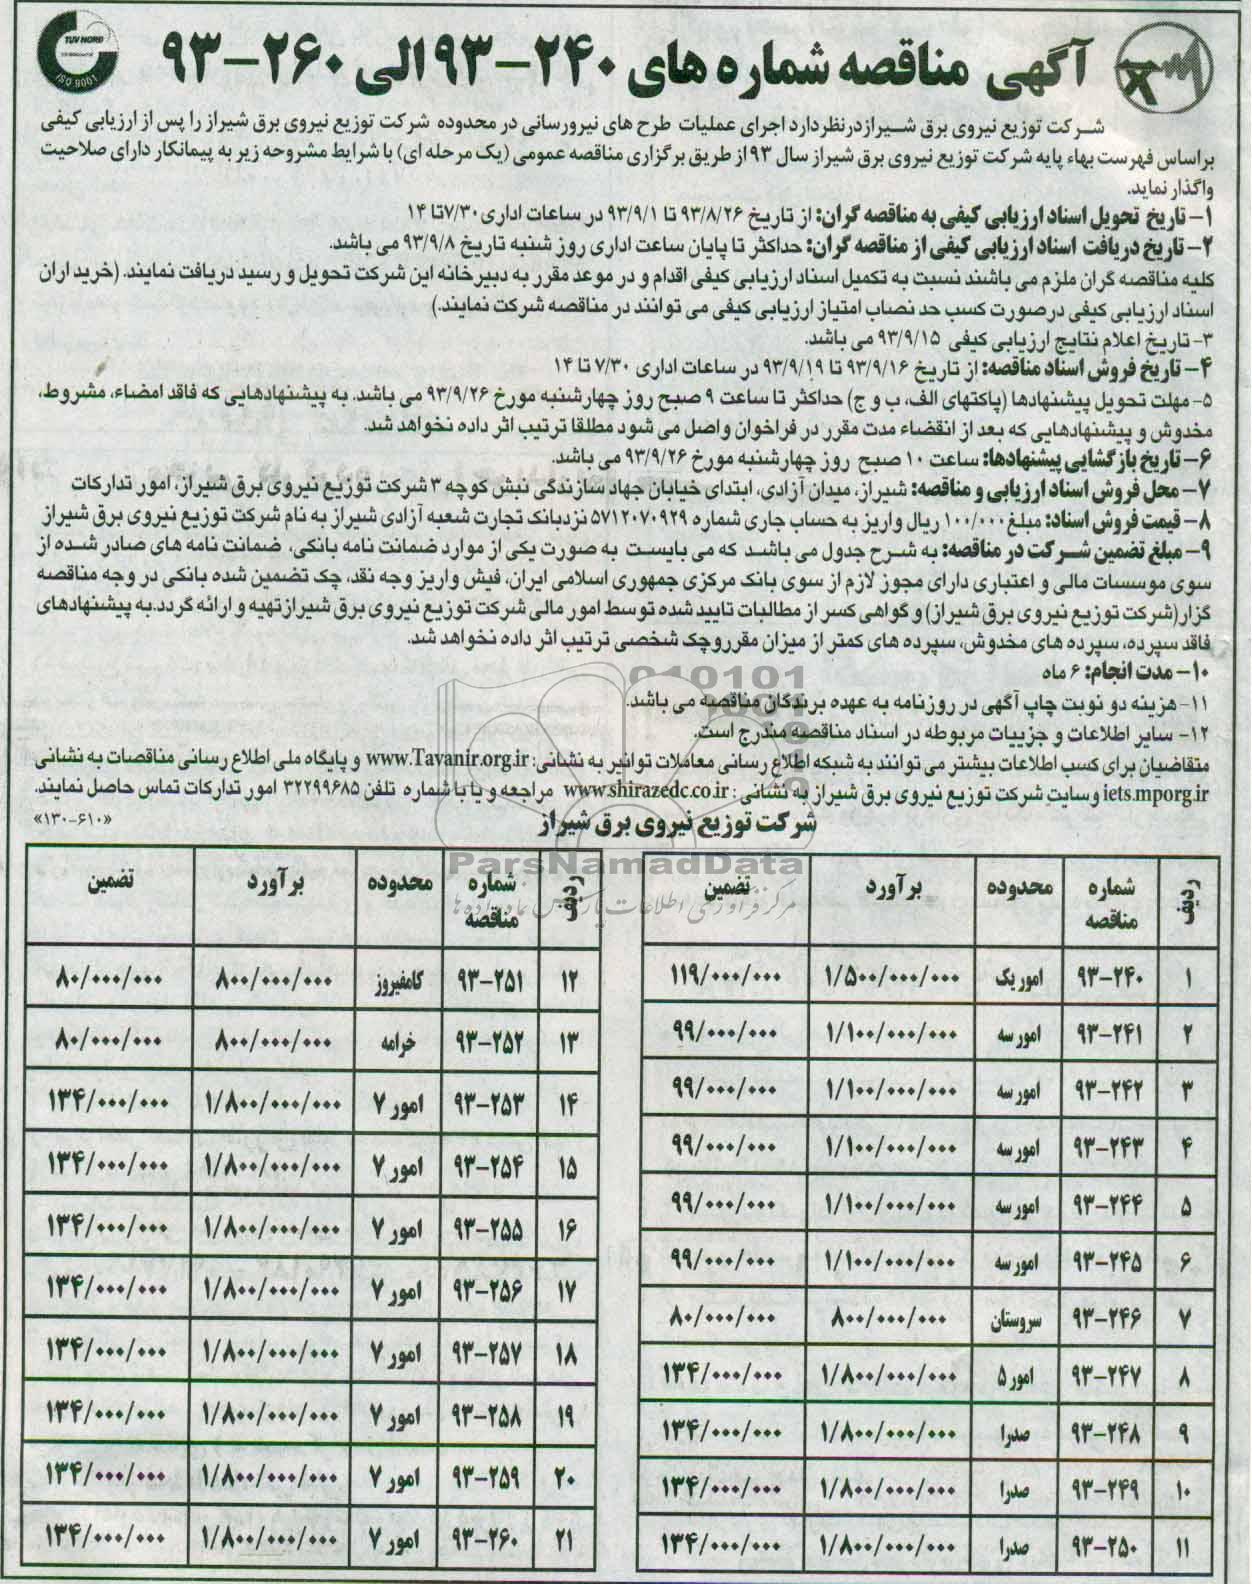 آگهی مناقصه شماره های ۲۴۰-۹۳ الی ۲۶۰-۹۳
TUV NORD
ISO 9001
شرکت توزیع نیروی برق شیراز درنظردارد اجرای عملیات طرح های نیرورسانی در محدوده شرکت توزیع نیروی برق شیراز را پس از ارزیابی کیفی
براساس فهرست بهاء پایه شرکت توزیع نیروی برق شیراز سال ۹۳ از طریق برگزاری مناقصه عمومی (یک مرحله ای) با شرایط مشروحه زیر به پیمانکار دارای صلاحیت
واگذار نماید.
۱- تاریخ تحویل اسناد ارزیابی کیفی به مناقصه گران: از تاریخ ۹۳/۸/۲۶ تا ۹۳/۹/۱ در ساعات اداری ۷/۳۰ تا ۱۴
۲- تاریخ دریافت اسناد ارزیابی کیفی از مناقصه گران: حداکثر تا پایان ساعت اداری روز شنبه تاریخ ۹۳/۹/۸ می باشد.
کلیه مناقصه گران ملزم می باشند نسبت به تکمیل اسناد ارزیابی کیفی اقدام و در موعد مقرر به دبیرخانه این شرکت تحویل و رسید دریافت نمایند. (خریداران
اسناد ارزیابی کیفی درصورت کسب حد نصاب امتیاز ارزیابی کیفی می توانند در مناقصه شرکت نمایند.)
۳- تاریخ اعلام نتایج ارزیابی کیفی ۹۳/۹/۱۵ می باشد.
۴- تاریخ فروش اسناد مناقصه: از تاریخ ۹۳/۹/۱۶ تا ۹۳/۹/۱۹ در ساعات اداری ۷/۳۰ تا ۱۴
۵- مهلت تحویل پیشنهادها (پاکتهای الف، ب و ج) حداکثر تا ساعت ۹ صبح روز چهارشنبه مورخ ۹۳/۹/۲۶ می باشد. به پیشنهادهایی که فاقد امضاء، مشروط،
مخدوش و پیشنهادهایی که بعد از انقضاء مدت مقرر در فراخوان واصل می شود مطلقا ترتیب اثر داده نخواهد شد.
۶- تاریخ بازگشایی پیشنهادها: ساعت ۱۰ صبح روز چهارشنبه مورخ ۹۳/۹/۲۶ می باشد.
۷- محل فروش اسناد ارزیابی و مناقصه: شیراز، میدان آزادی، ابتدای خیابان جهاد سازندگی نبش کوچه ۳ شرکت توزیع نیروی برق شیراز، امور تدارکات
۸- قیمت فروش اسناد: مبلغ ۱۰۰/۰۰۰ ریال واریز به حساب جاری شماره ۵۷۱۲۰۷۰۹۲۹ نزدبانک تجارت شعبه آزادی شیراز به نام شرکت توزیع نیروی برق شیراز
۹- مبلغ تضمین شرکت در مناقصه: به شرح جدول می باشد که می بایست به صورت یکی از موارد ضمانت نامه بانکی، ضمانت نامه های صادر شده از
سوی موسسات مالی و اعتباری دارای مجوز لازم از سوی بانک مرکزی جمهوری اسلامی ایران، فیش واریز وجه نقد، چک تضمین شده بانکی در وجه مناقصه
گزار (شرکت توزیع نیروی برق شیراز) و گواهی کسر از مطالبات تایید شده توسط امور مالی شرکت توزیع نیروی برق شیراز تهیه و ارائه گردد. به پیشنهادهای
فاقد سپرده، سپرده های مخدوش، سپرده های کمتر از میزان مقرر و چک شخصی ترتیب اثر داده نخواهد شد.
۱۰- مدت انجام: ۶ ماه
۱۱- هزینه دو نوبت چاپ آگهی در روزنامه به عهده برندگان مناقصه می باشد.
۱۲- سایر اطلاعات و جزییات مربوطه در اسناد مناقصه مندرج است.
متقاضیان برای کسب اطلاعات بیشتر می توانند به شبکه اطلاع رسانی معاملات توانیر به نشانی: www.Tavanir.org.ir و پایگاه ملی اطلاع رسانی مناقصات به نشانی
iets.mporg.ir وسایت شرکت توزیع نیروی برق شیراز به نشانی: www.shirazedc.co.ir مراجعه و یا با شماره تلفن ۳۲۲۹۹۶۸۵ امور تدارکات تماس حاصل نمایند.
شرکت توزیع نیروی برق شیراز
«۱۳۰-۶۱۰»
ParsNamadData
مرکز فرآوری اطلاعات پارس نماد داده ها
ردیف شماره مناقصه محدوده برآورد تضمین
۱ ۹۳-۲۴۰ امور یک ۱/۵۰۰/۰۰۰/۰۰۰ ۱۱۹/۰۰۰/۰۰۰
۲ ۹۳-۲۴۱ امور سه ۱/۱۰۰/۰۰۰/۰۰۰ ۹۹/۰۰۰/۰۰۰
۳ ۹۳-۲۴۲ امور سه ۱/۱۰۰/۰۰۰/۰۰۰ ۹۹/۰۰۰/۰۰۰
۴ ۹۳-۲۴۳ امور سه ۱/۱۰۰/۰۰۰/۰۰۰ ۹۹/۰۰۰/۰۰۰
۵ ۹۳-۲۴۴ امور سه ۱/۱۰۰/۰۰۰/۰۰۰ ۹۹/۰۰۰/۰۰۰
۶ ۹۳-۲۴۵ امور سه ۱/۱۰۰/۰۰۰/۰۰۰ ۹۹/۰۰۰/۰۰۰
۷ ۹۳-۲۴۶ سروستان ۸۰۰/۰۰۰/۰۰۰ ۸۰/۰۰۰/۰۰۰
۸ ۹۳-۲۴۷ امور ۵ ۱/۸۰۰/۰۰۰/۰۰۰ ۱۳۴/۰۰۰/۰۰۰
۹ ۹۳-۲۴۸ صدرا ۱/۸۰۰/۰۰۰/۰۰۰ ۱۳۴/۰۰۰/۰۰۰
۱۰ ۹۳-۲۴۹ صدرا ۱/۸۰۰/۰۰۰/۰۰۰ ۱۳۴/۰۰۰/۰۰۰
۱۱ ۹۳-۲۵۰ صدرا ۱/۸۰۰/۰۰۰/۰۰۰ ۱۳۴/۰۰۰/۰۰۰
ردیف شماره مناقصه محدوده برآورد تضمین
۱۲ ۹۳-۲۵۱ کامفیروز ۸۰۰/۰۰۰/۰۰۰ ۸۰/۰۰۰/۰۰۰
۱۳ ۹۳-۲۵۲ خرامه ۸۰۰/۰۰۰/۰۰۰ ۸۰/۰۰۰/۰۰۰
۱۴ ۹۳-۲۵۳ امور ۷ ۱/۸۰۰/۰۰۰/۰۰۰ ۱۳۴/۰۰۰/۰۰۰
۱۵ ۹۳-۲۵۴ امور ۷ ۱/۸۰۰/۰۰۰/۰۰۰ ۱۳۴/۰۰۰/۰۰۰
۱۶ ۹۳-۲۵۵ امور ۷ ۱/۸۰۰/۰۰۰/۰۰۰ ۱۳۴/۰۰۰/۰۰۰
۱۷ ۹۳-۲۵۶ امور ۷ ۱/۸۰۰/۰۰۰/۰۰۰ ۱۳۴/۰۰۰/۰۰۰
۱۸ ۹۳-۲۵۷ امور ۷ ۱/۸۰۰/۰۰۰/۰۰۰ ۱۳۴/۰۰۰/۰۰۰
۱۹ ۹۳-۲۵۸ امور ۷ ۱/۸۰۰/۰۰۰/۰۰۰ ۱۳۴/۰۰۰/۰۰۰
۲۰ ۹۳-۲۵۹ امور ۷ ۱/۸۰۰/۰۰۰/۰۰۰ ۱۳۴/۰۰۰/۰۰۰
۲۱ ۹۳-۲۶۰ امور ۷ ۱/۸۰۰/۰۰۰/۰۰۰ ۱۳۴/۰۰۰/۰۰۰